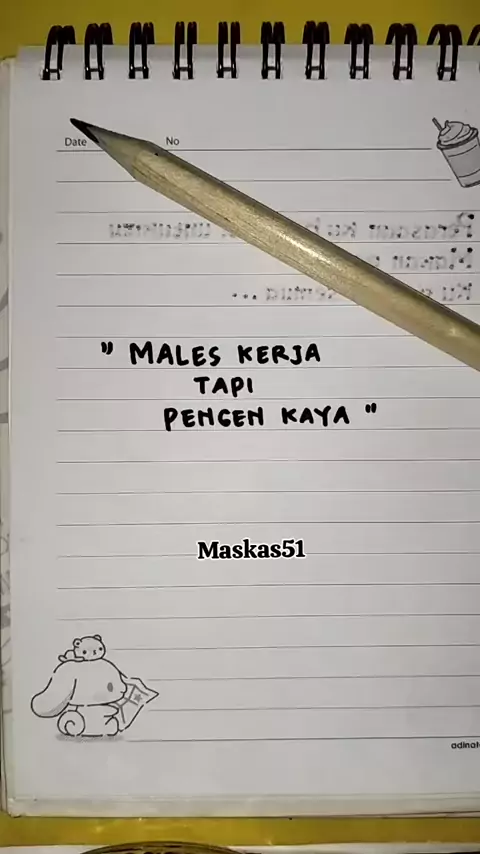 Date No
" MALES KERJA
TAPI
PENGEN KAYA "
Maskas51